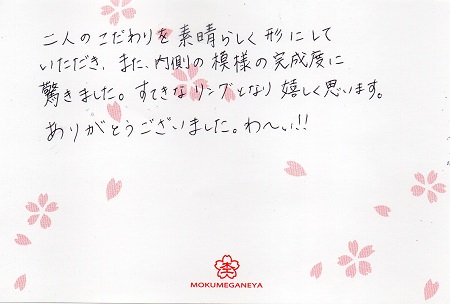 二人のこだわりを素晴らしく形にして
いただき、また、内側の模様の完成度に
驚きました。すてきなリングとなり嬉しく思います。
ありがとうございました。わ〜い!!
MOKUMEGANEYA